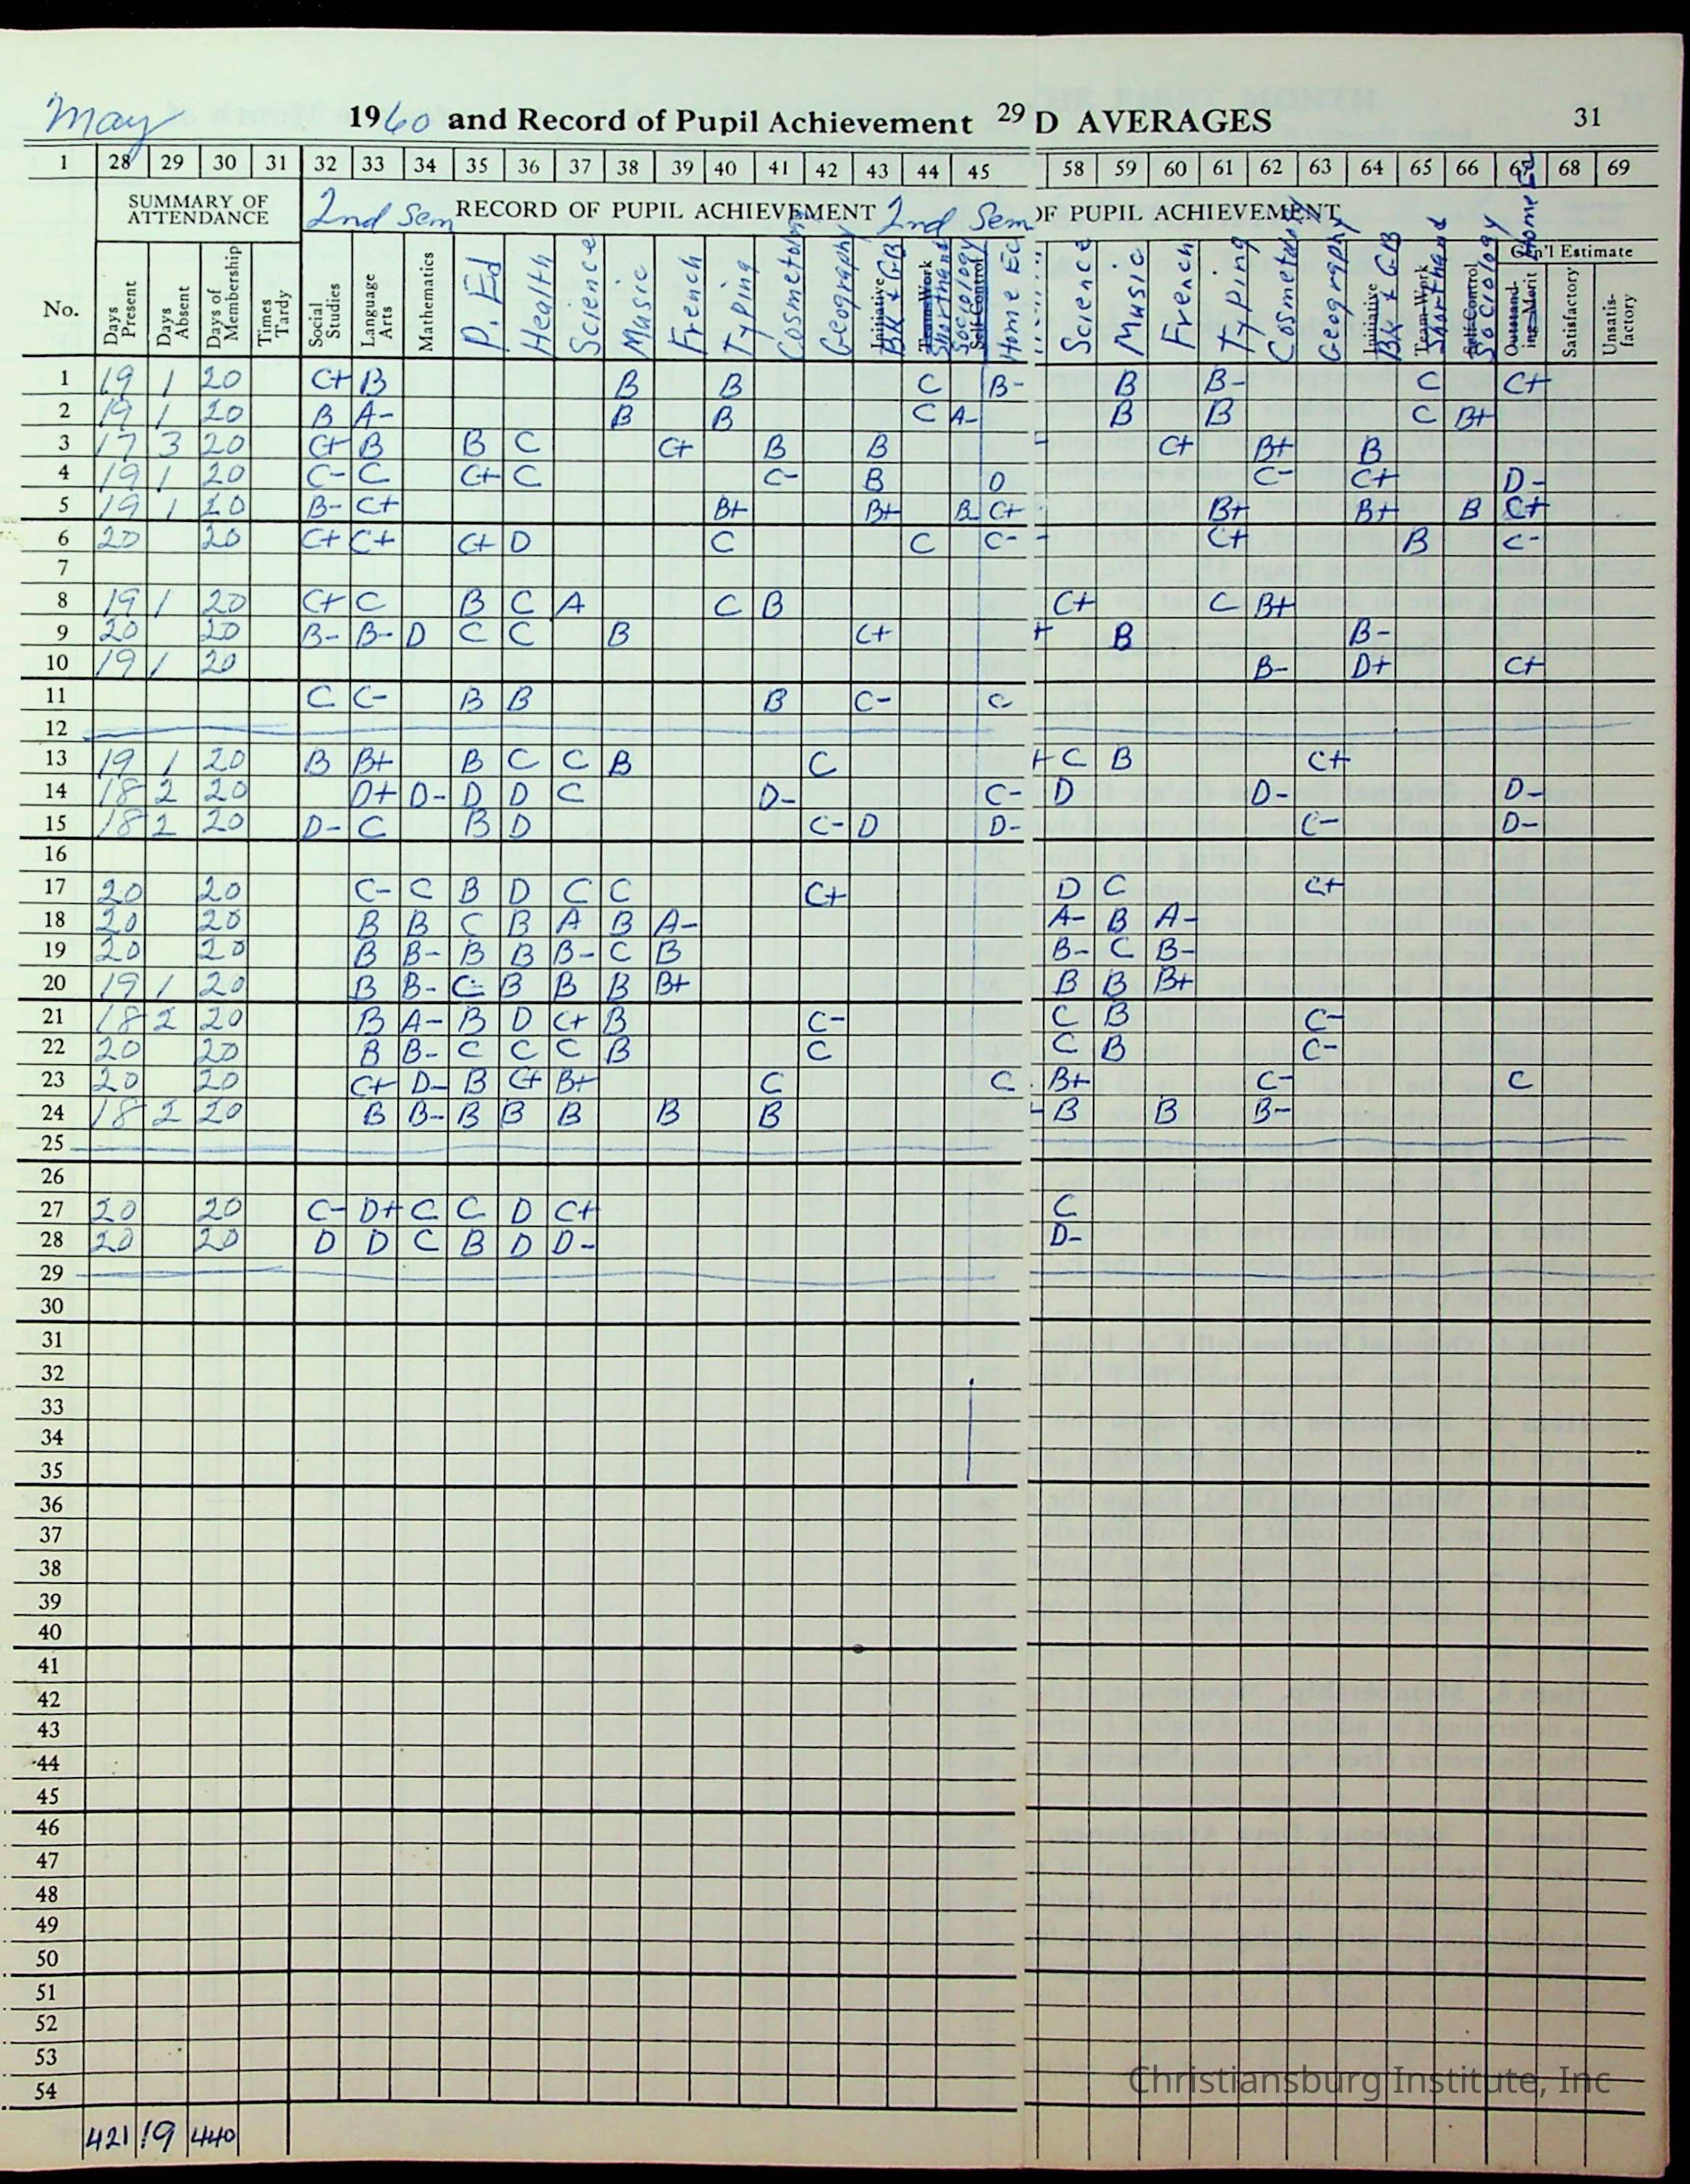 May 1960 and Record of Pupil Achievement 29 D AVERAGES 31
1 28 29 30 31 32 33 34 35 36 37 38 39 40 41 42 43 44 45 58 59 60 61 62 63 64 65 66 67 68 69
SUMMARY OF ATTENDANCE 2nd Sem RECORD OF PUPIL ACHIEVEMENT 2nd Sem OF PUPIL ACHIEVEMENT
Gen'l Estimate
No. Days Present Days Absent Days of Membership Times Tardy Social Studies Language Arts Mathematics P. Ed Health Science Music French Typing Cosmetology Geography Initiative BK & GB Team-Work Shorthand Sociology Self-Control Home Ec Science Music French Typing Cosmetology Geography Initiative BK & GB Team-Work Shorthand Self-Control Sociology Outstanding Merit Home Ec Satisfactory Unsatisfactory
1 19 1 20 C+ B B B C B- B B- C C+
2 19 1 20 B A- B B C A- B B C B+
3 17 3 20 C+ B B C C+ B B - C+ B+ B
4 19 1 20 C- C C+ C C- B D C- C+ D-
5 19 1 20 B- C+ B+ B+ B- C+ B+ B+ B C+
6 20 20 C+ C+ C+ D C C C- - C+ B C-
7
8 19 1 20 C+ C B C A C B C+ C B+
9 20 20 B- B- D C C B C+ + B B-
10 19 1 20 B- D+ C+
11 C C- B B B C- C
12
13 19 1 20 B B+ B C C B C + C B C+
14 18 2 20 D+ D- D D C D- C- D D- D-
15 18 2 20 D- C B D C- D D- C- D-
16
17 20 20 C- C B D C C C+ D C C+
18 20 20 B B C B A B A- A- B A-
19 20 20 B B- B B B- C B B- C B-
20 19 1 20 B B- C- B B B B+ B B B+
21 18 2 20 B A- B D C+ B C- C B C-
22 20 20 B B- C C C B C C B C-
23 20 20 C+ D- B C+ B+ C C B+ C- C
24 18 2 20 B B- B B B B B - B B B-
25
26
27 20 20 C- D+ C C D C+ C
28 20 20 D D C B D D- D-
29
30
31
32
33
34
35
36
37
38
39
40
41
42
43
44
45
46
47
48
49
50
51
52
53
54
421 19 440
Christiansburg Institute, Inc